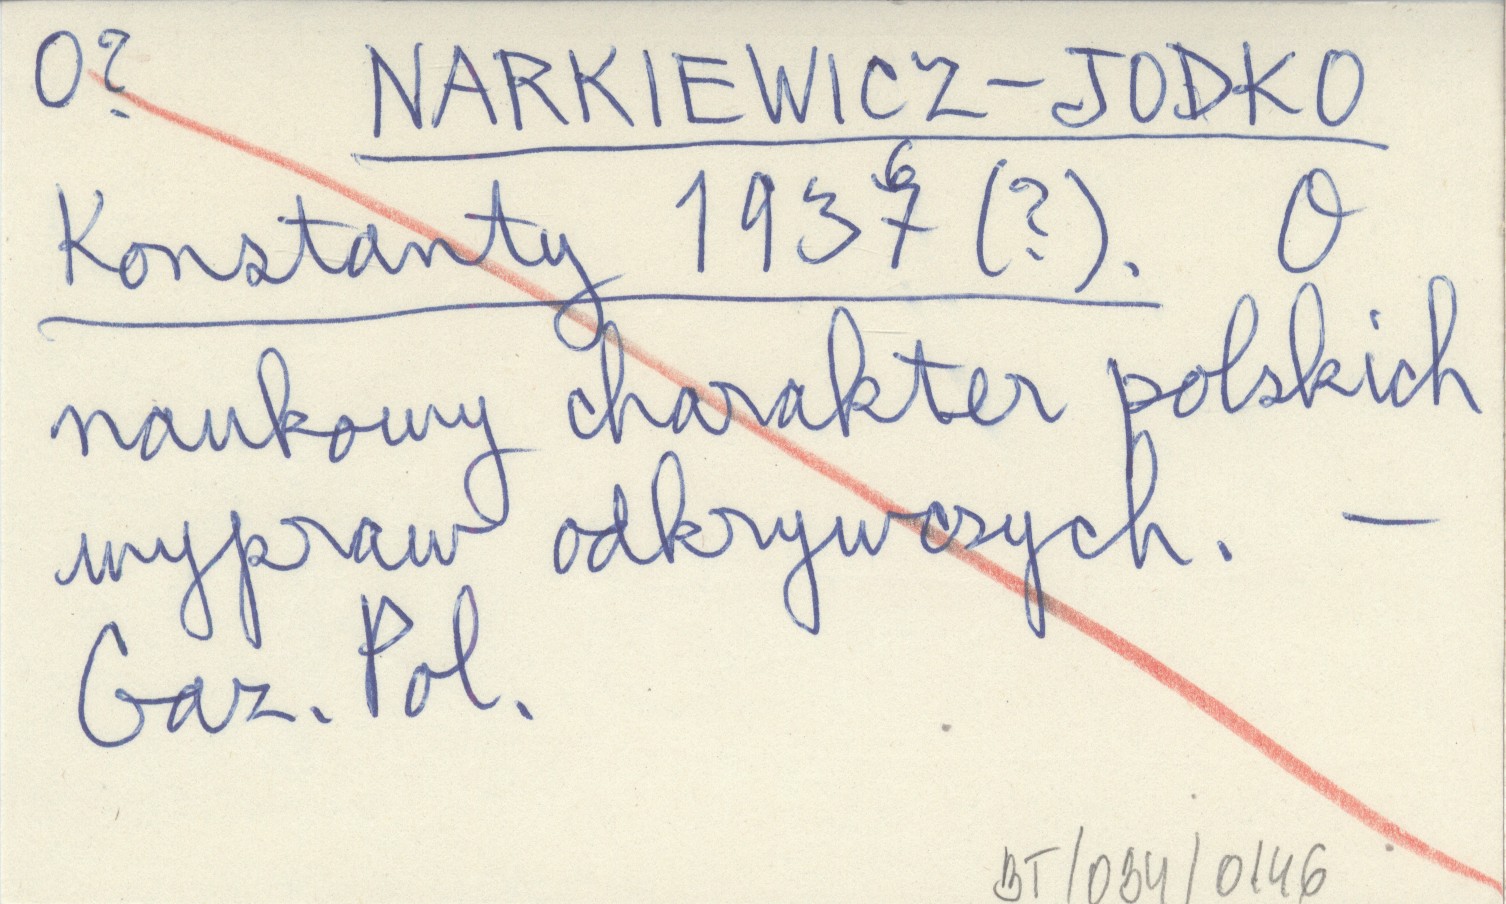 O? NARKIEWICZ-JODKO
Konstanty 1936 (?). O
naukowy charakter polskich
wypraw odkrywczych. —
Gaz. Pol.
BT/034/0146